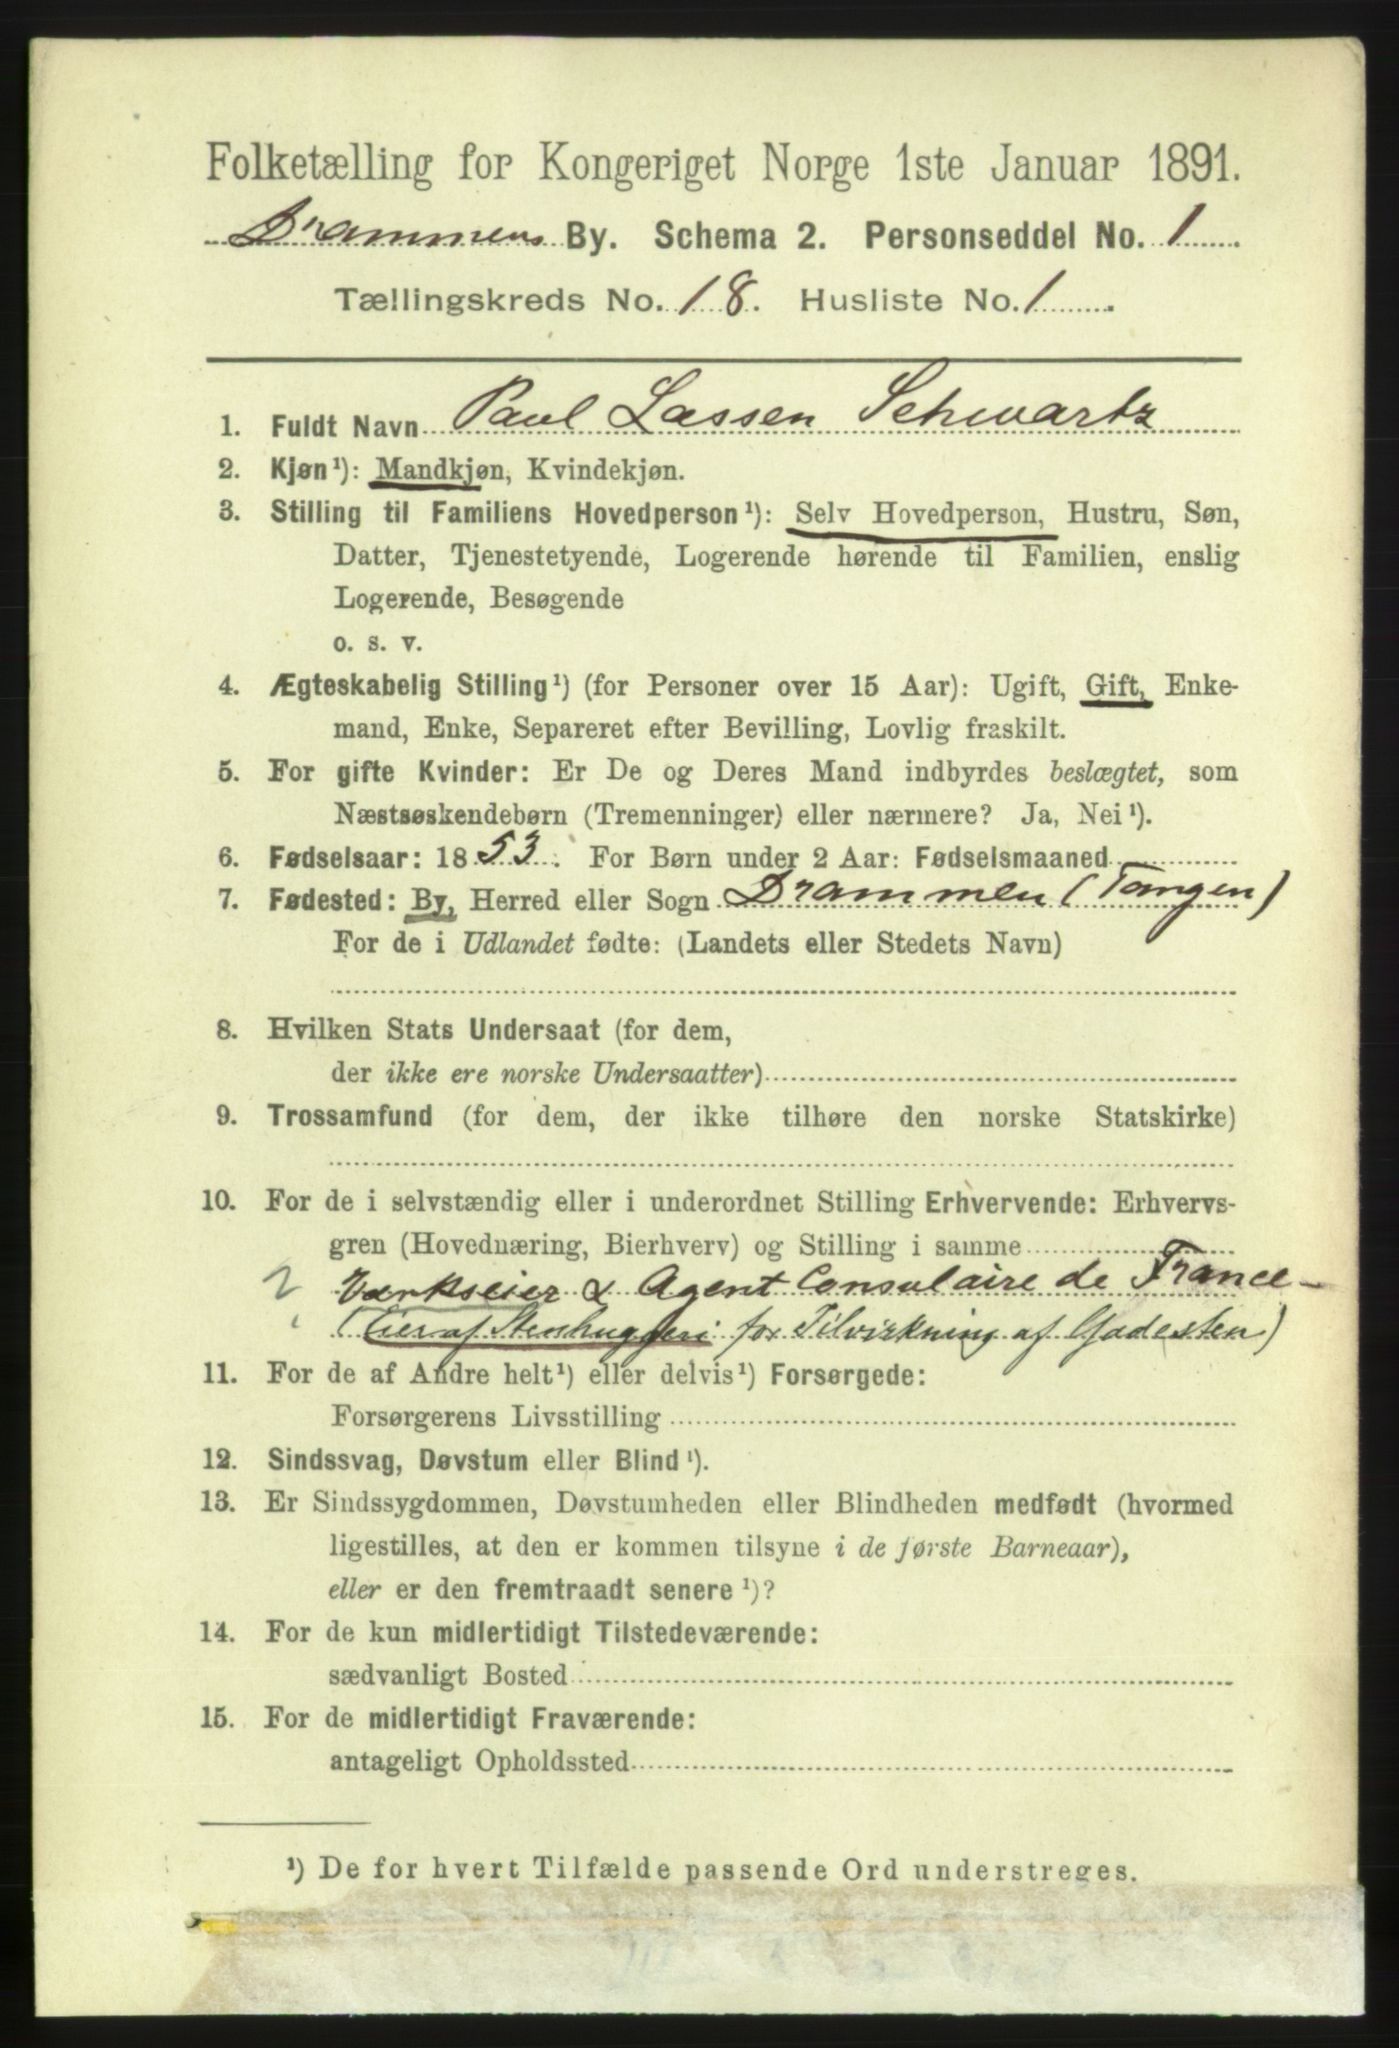 Folketælling for Kongeriget Norge 1ste Januar 1891.
Drammens By. Schema 2. Personseddel No. 1
Tællingskreds No. 18. Husliste No. 1
1. Fuldt Navn Paul Lassen Schwartz
2. Kjøn¹): Mandkjøn, Kvindekjøn.
3. Stilling til Familiens Hovedperson¹): Selv Hovedperson, Hustru, Søn,
Datter, Tjenestetyende, Logerende hørende til Familien, enslig
Logerende, Besøgende
o. s. v.
4. Ægteskabelig Stilling¹) (for Personer over 15 Aar): Ugift, Gift, Enke-
mand, Enke, Separeret efter Bevilling, Lovlig fraskilt.
5. For gifte Kvinder: Er De og Deres Mand indbyrdes beslægtet, som
Næstsøskendebørn (Tremenninger) eller nærmere? Ja, Nei¹).
6. Fødselsaar: 1853. For Børn under 2 Aar: Fødselsmaaned
7. Fødested: By, Herred eller Sogn Drammen (Tangen)
For de i Udlandet fødte: (Landets eller Stedets Navn)
8. Hvilken Stats Undersaat (for dem,
der ikke ere norske Undersaatter)
9. Trossamfund (for dem, der ikke tilhøre den norske Statskirke)
10. For de i selvstændig eller i underordnet Stilling Erhvervende: Erhvervs-
gren (Hovednæring, Bierhverv) og Stilling i samme
Værkseier & Agent Consulaire de France -
(Eier af Stenhuggeri for Tilvirkning af Gadesten)
11. For de af Andre helt¹) eller delvis¹) Forsørgede:
Forsørgerens Livsstilling
12. Sindssvag, Døvstum eller Blind¹).
13. Er Sindssygdommen, Døvstumheden eller Blindheden medfødt (hvormed
ligestilles, at den er kommen tilsyne i de første Barneaar),
eller er den fremtraadt senere¹)?
14. For de kun midlertidigt Tilstedeværende:
sædvanligt Bosted
15. For de midlertidigt Fraværende:
antageligt Opholdssted
¹) De for hvert Tilfælde passende Ord understreges.